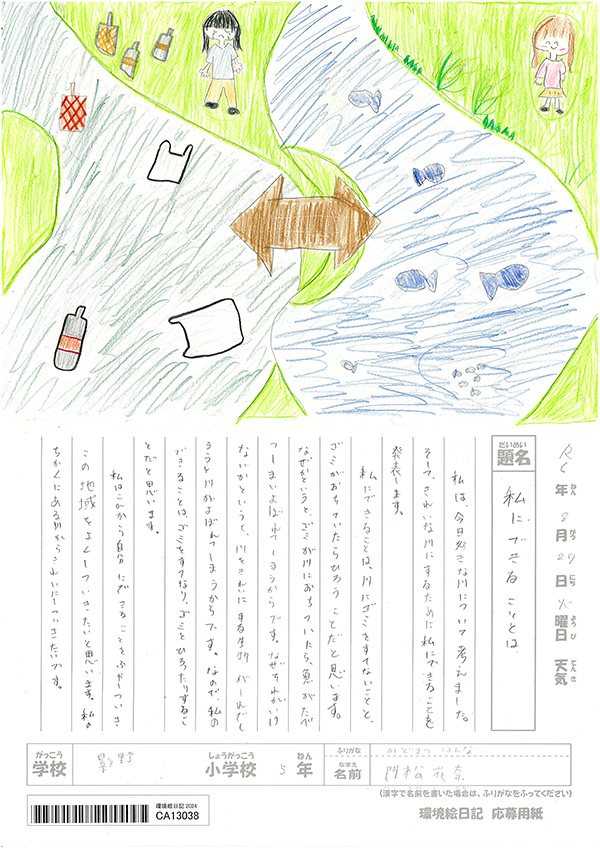 R6年8月27日火曜日 天気
ねん がつ にち ようび てんき
だいめい
題名 私にできることは
私は、今日好きな川について考えました。
そして、きれいな川にするために私にできることを
発表します。
私にできることは、川にゴミをすてないことと、
ゴミがおちていたらひろうことだと思います。
なぜかというと、ゴミが川におちていたら、魚がたべ
てしまいよごれてしまうからです。なぜそれがいけ
ないかというと、川をきれいにする生物が
川がよごれてしまうからです。なので、私の
できることは、ゴミをすてなり、ゴミをひろったりするこ
とだと思います。
私はこれから自分にできることをふやしていき
この地域をよくしていきたいと思います。私の
ちかくにある川からきれいにしていきたいです。
がっこう しょうがっこう ねん ふりがな かどまつ はんな
学校 影野 小学校 5年 なまえ 名前 門松 花奈
(漢字で名前を書いた場合は、ふりがなをふってください)
環境絵日記 2024
CA13038
環境絵日記 応募用紙